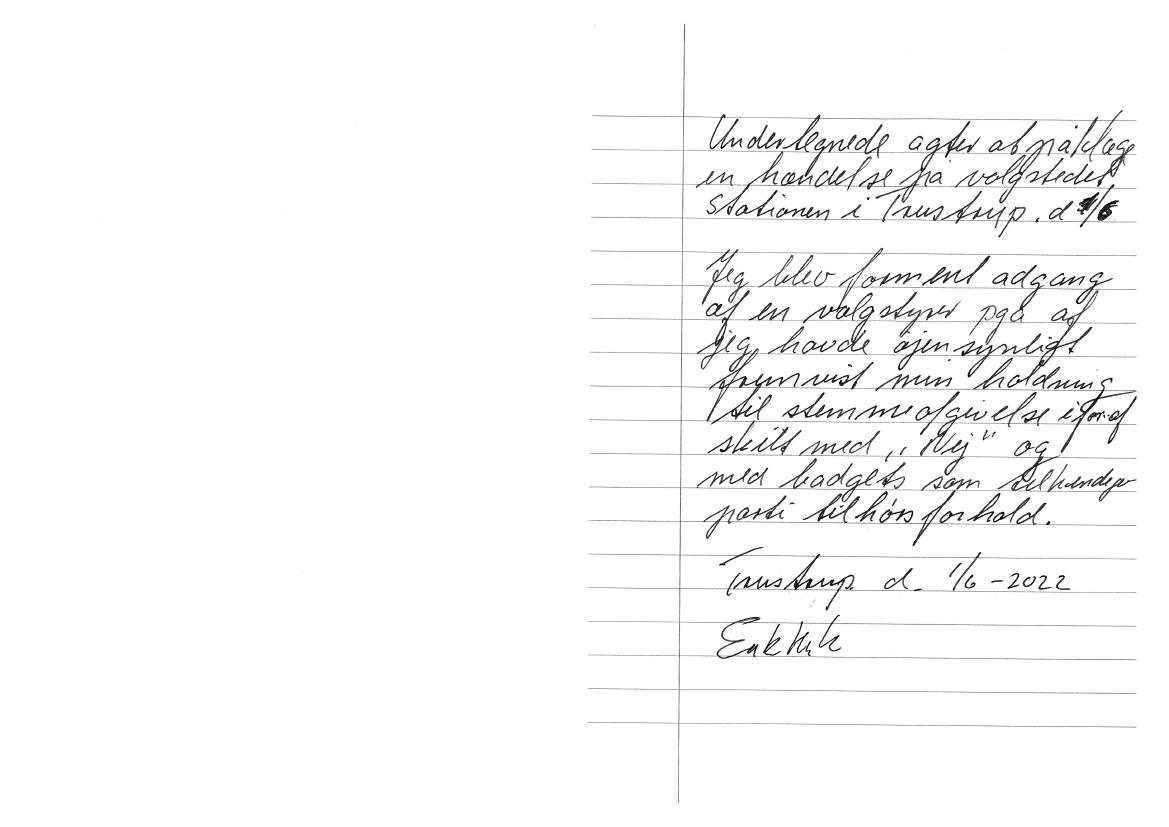 Undertegnede agter at påklage
en hændelse på valgstedet
Stationen i Trustrup. d 1/6
Jeg blev forment adgang
af en valgstyrer pga at
jeg havde øjensynligt
fremvist min holdning
til stemmeafgivelse i form af
skilt med ,,Nej" og
med badgets som
parti tilhørsforhold.
Trustrup d. 1/6 - 2022